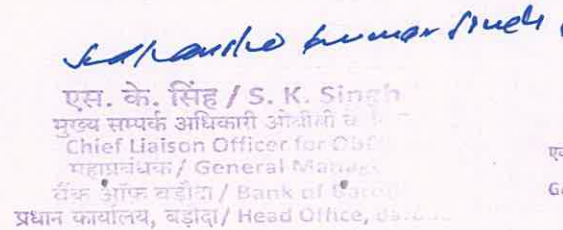 kumar Singh
एस. के. सिंह / S. K. Singh
मुख्य सम्पर्क अधिकारी ओबीसी
Chief Liaison Officer for OBC
महाप्रबंधक / General Manager
बैंक ऑफ बड़ौदा / Bank of Baroda
प्रधान कार्यालय, बड़ौदा / Head Office,